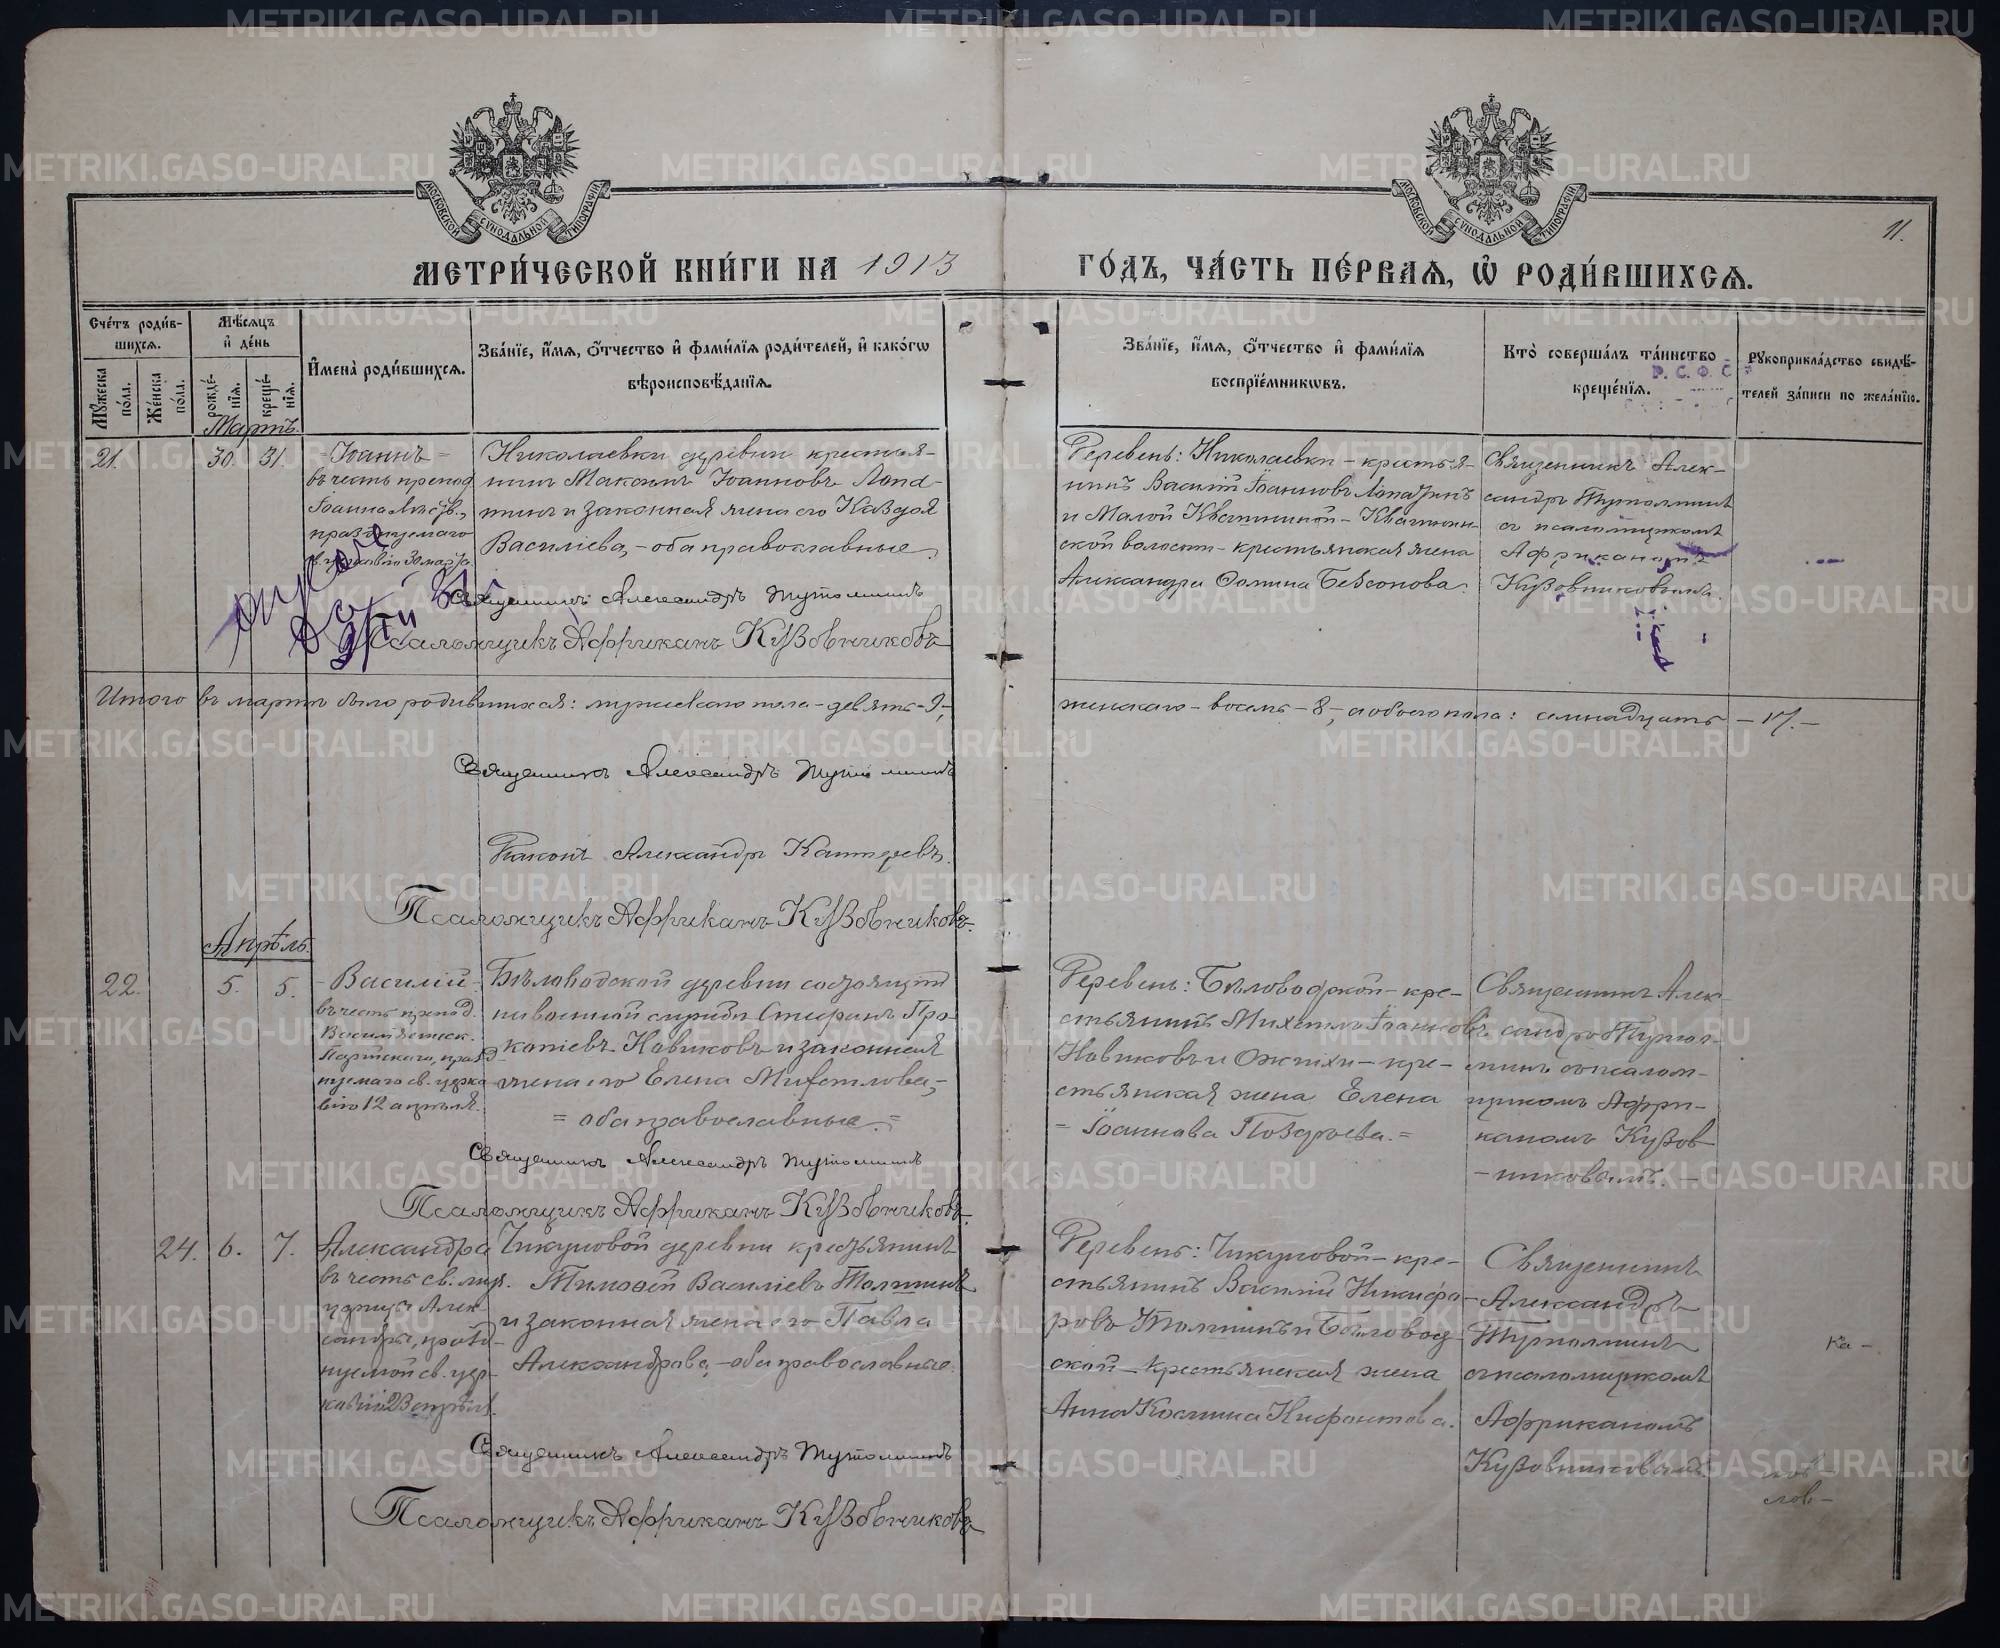 МОСКОВСКОЙ СѴНОДАЛЬНОЙ ТИПОГРАФІИ
МОСКОВСКОЙ СѴНОДАЛЬНОЙ ТИПОГРАФІИ
11.
МЕТРИ́ЧЕСКОЙ КНИ́ГИ НА 1913 ГО́ДЪ, ЧА́СТЬ ПЕ́РВАѦ, Ѡ҆ РОДИ́ВШИХСѦ.
Сче́тъ роди́в-
шихсѧ.
Мꙋ́жеска по́ла.
Же́нска по́ла.
Мѣ́сѧцъ и҆ де́нь
рожде́-
нїѧ.
креще́-
нїѧ.
И҆мена̀ роди́вшихсѧ.
Зва́нїе, и҆́мѧ, ѻ҆́тчество и҆ фами́лїѧ роди́телей, и҆ како́гѡ
вѣроисповѣ́данїѧ.
Зва́нїе, и҆́мѧ, ѻ҆́тчество и҆ фами́лїѧ
воспрїе́мникѡвъ.
Кто̀ соверша́лъ та́инство
креще́нїѧ.
Рꙋкоприкла́дство свидѣ́-
телей за́писи по жела́нїю.
Р. С. Ф. С
Мартъ.
21.
30.
31.
Іоаннъ
въ честь препод.
Іоанна
празднуемаго
30 марта
Николаевки деревни крестья-
нинъ Максимъ Іоанновъ Лопа-
тинъ и законная жена его
Василіева, - оба православные
Священникъ Александръ Тутолминъ
Псаломщикъ Африканъ Кузовниковъ
Деревень: Николаевки - крестья-
нинъ Василій Іоанновъ Лопатинъ
и Малой Квашниной - Квашнин-
ской волости - крестьянская жена
Александра Фомина Безсонова.
Священникъ Алек-
сандръ Тутолминъ
съ псаломщикомъ
Африканомъ
Кузовниковымъ.
Итого въ мартѣ было родившихся: мужскаго пола - девять - 9, - женскаго - восемь - 8, - а обоего пола: семнадцать - 17. -
Священникъ Александръ Тутолминъ
Діаконъ Александръ
Псаломщикъ Африканъ Кузовниковъ.
Апрѣль.
22.
5.
5.
- Василій -
въ честь препод.
Василія еписк.
Парійскаго, празд-
нуемаго св. церко-
вію 12 апрѣля.
Бѣловодской деревни состоящій
на военной службѣ Стефанъ Про-
копіевъ Новиковъ и законная
жена его Елена Михеилова, -
= оба православные. =
Священникъ Александръ Тутолминъ
Псаломщикъ Африканъ Кузовниковъ.
Деревень: Бѣловодской - кре-
стьянинъ Іоанновъ
Новиковъ и - кре-
стьянская жена Елена
- Іоаннова Поздѣева. =
Священникъ Алек-
сандръ Тутол-
минъ съ псалом-
щикомъ Афри-
каномъ Кузов-
- никовымъ. -
24.
6.
7.
Александра
въ честь св. му-
ченицы Алек-
сандры, празд-
нуемой св. цер-
ковію 23 апрѣля.
Чикуновой деревни крестьянинъ
Тимоѳей Василіевъ Толпинъ
и законная жена его Павла
Александрова, - оба православные.
Священникъ Александръ Тутолминъ
Псаломщикъ Африканъ Кузовниковъ
Деревень: Чикуновой - кре-
стьянинъ Василій Никифо-
ровъ Толпинъ и Бѣловод-
ской - крестьянская жена
Анна Космина Нифонтова.
Священникъ
Александръ
Тутолминъ
съ псаломщикомъ
Африканомъ
Кузовниковымъ
Ка -
нов -
слов -
METRIKI.GASO-URAL.RU